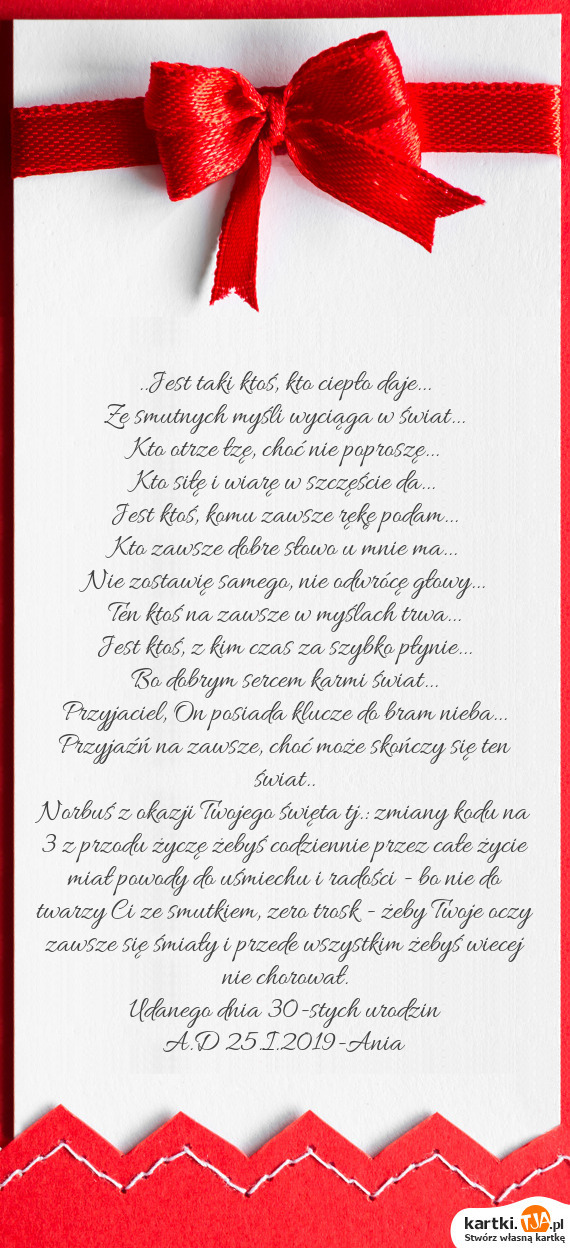 ..Jest taki ktoś, kto ciepło daje...
Ze smutnych myśli wyciąga w świat...
Kto otrze łzę, choć nie poproszę...
Kto siłę i wiarę w szczęście da...
Jest ktoś, komu zawsze rękę podam...
Kto zawsze dobre słowo u mnie ma...
Nie zostawię samego, nie odwrócę głowy...
Ten ktoś na zawsze w myślach trwa...
Jest ktoś, z kim czas za szybko płynie...
Bo dobrym sercem karmi świat...
Przyjaciel, On posiada klucze do bram nieba...
Przyjaźń na zawsze, choć może skończy się ten
świat..
Norbuś z okazji Twojego święta tj.: zmiany kodu na
3 z przodu życzę żebyś codziennie przez całe życie
miał powody do uśmiechu i radości - bo nie do
twarzy Ci ze smutkiem, zero trosk - żeby Twoje oczy
zawsze się śmiały i przede wszystkim żebyś wiecej
nie chorował.
Udanego dnia 30-stych urodzin
A.D 25.I.2019-Ania
kartki.TJA.pl
Stwórz własną kartkę